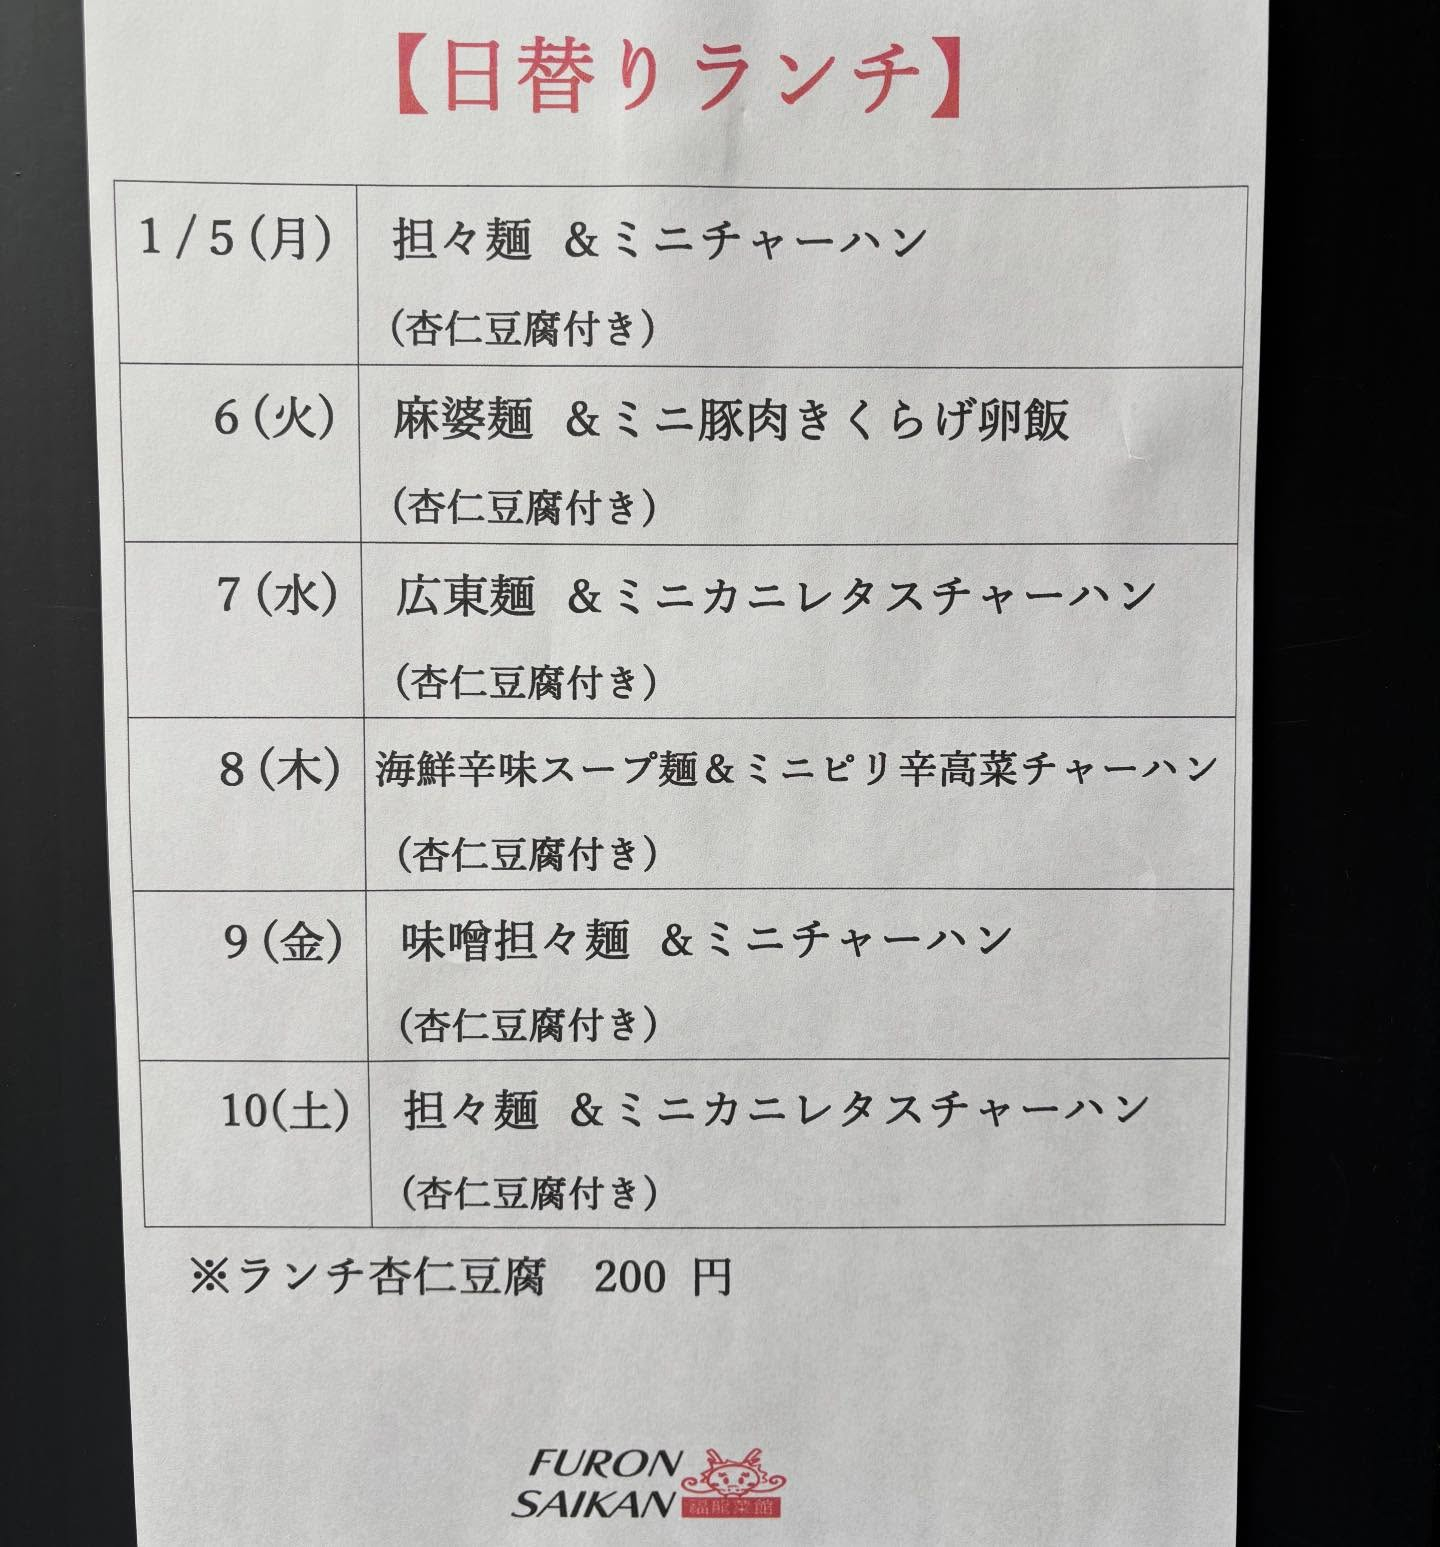 【日替りランチ】
1/5(月) 担々麺 &ミニチャーハン
(杏仁豆腐付き)
6(火) 麻婆麺 &ミニ豚肉きくらげ卵飯
(杏仁豆腐付き)
7(水) 広東麺 &ミニカニレタスチャーハン
(杏仁豆腐付き)
8(木) 海鮮辛味スープ麺&ミニピリ辛高菜チャーハン
(杏仁豆腐付き)
9(金) 味噌担々麺 &ミニチャーハン
(杏仁豆腐付き)
10(土) 担々麺 &ミニカニレタスチャーハン
(杏仁豆腐付き)
※ランチ杏仁豆腐 200 円
FURON
SAIKAN 福龍菜館